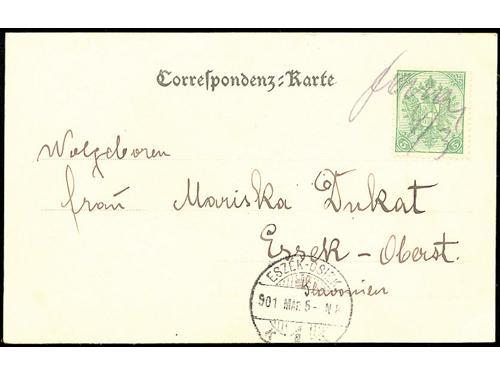 Correspondenz-Karte
Wolgeboren
frau Mariska Dukat
Essek - Oberst.
Slavonien
ESZÉK-OSIEK
901 MAR. 5